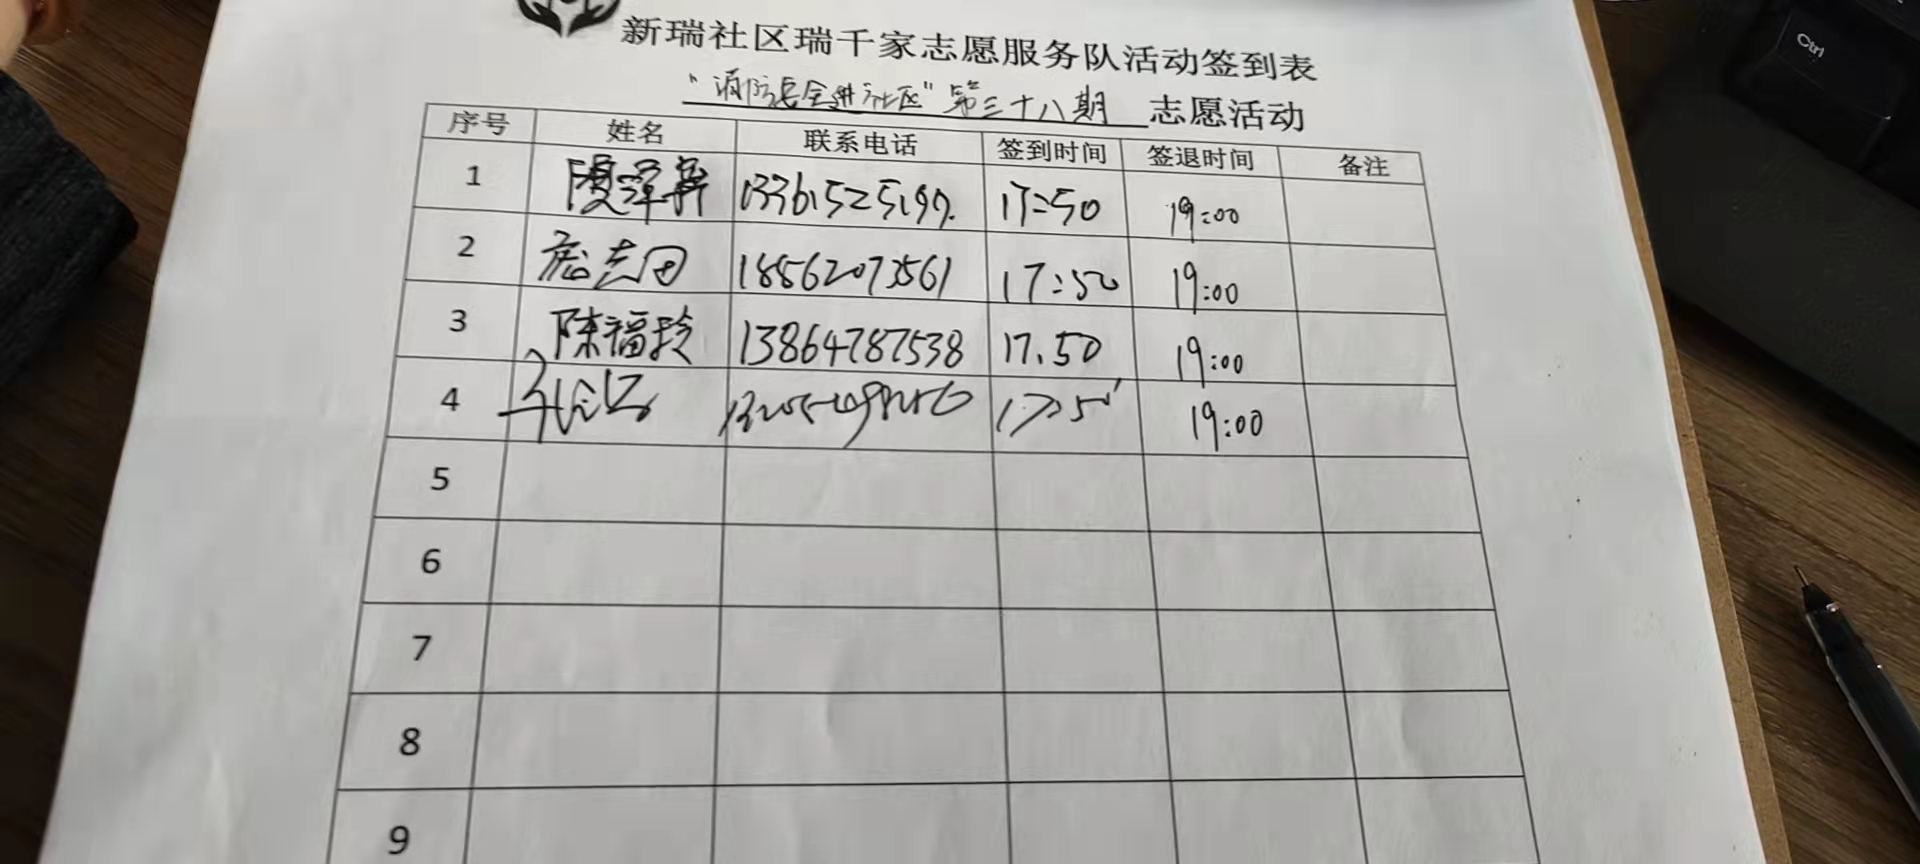 新瑞社区瑞千家志愿服务队活动签到表
"消防安全进社区"第三十八期 志愿活动
序号 姓名 联系电话 签到时间 签退时间 备注
1 13361525197. 17:50 19:00
2 志田 18562073561 17:50 19:00
3 陈福玲 13864787538 17.50 19:00
4 17:50 19:00
5
6
7
8
9
Ctrl